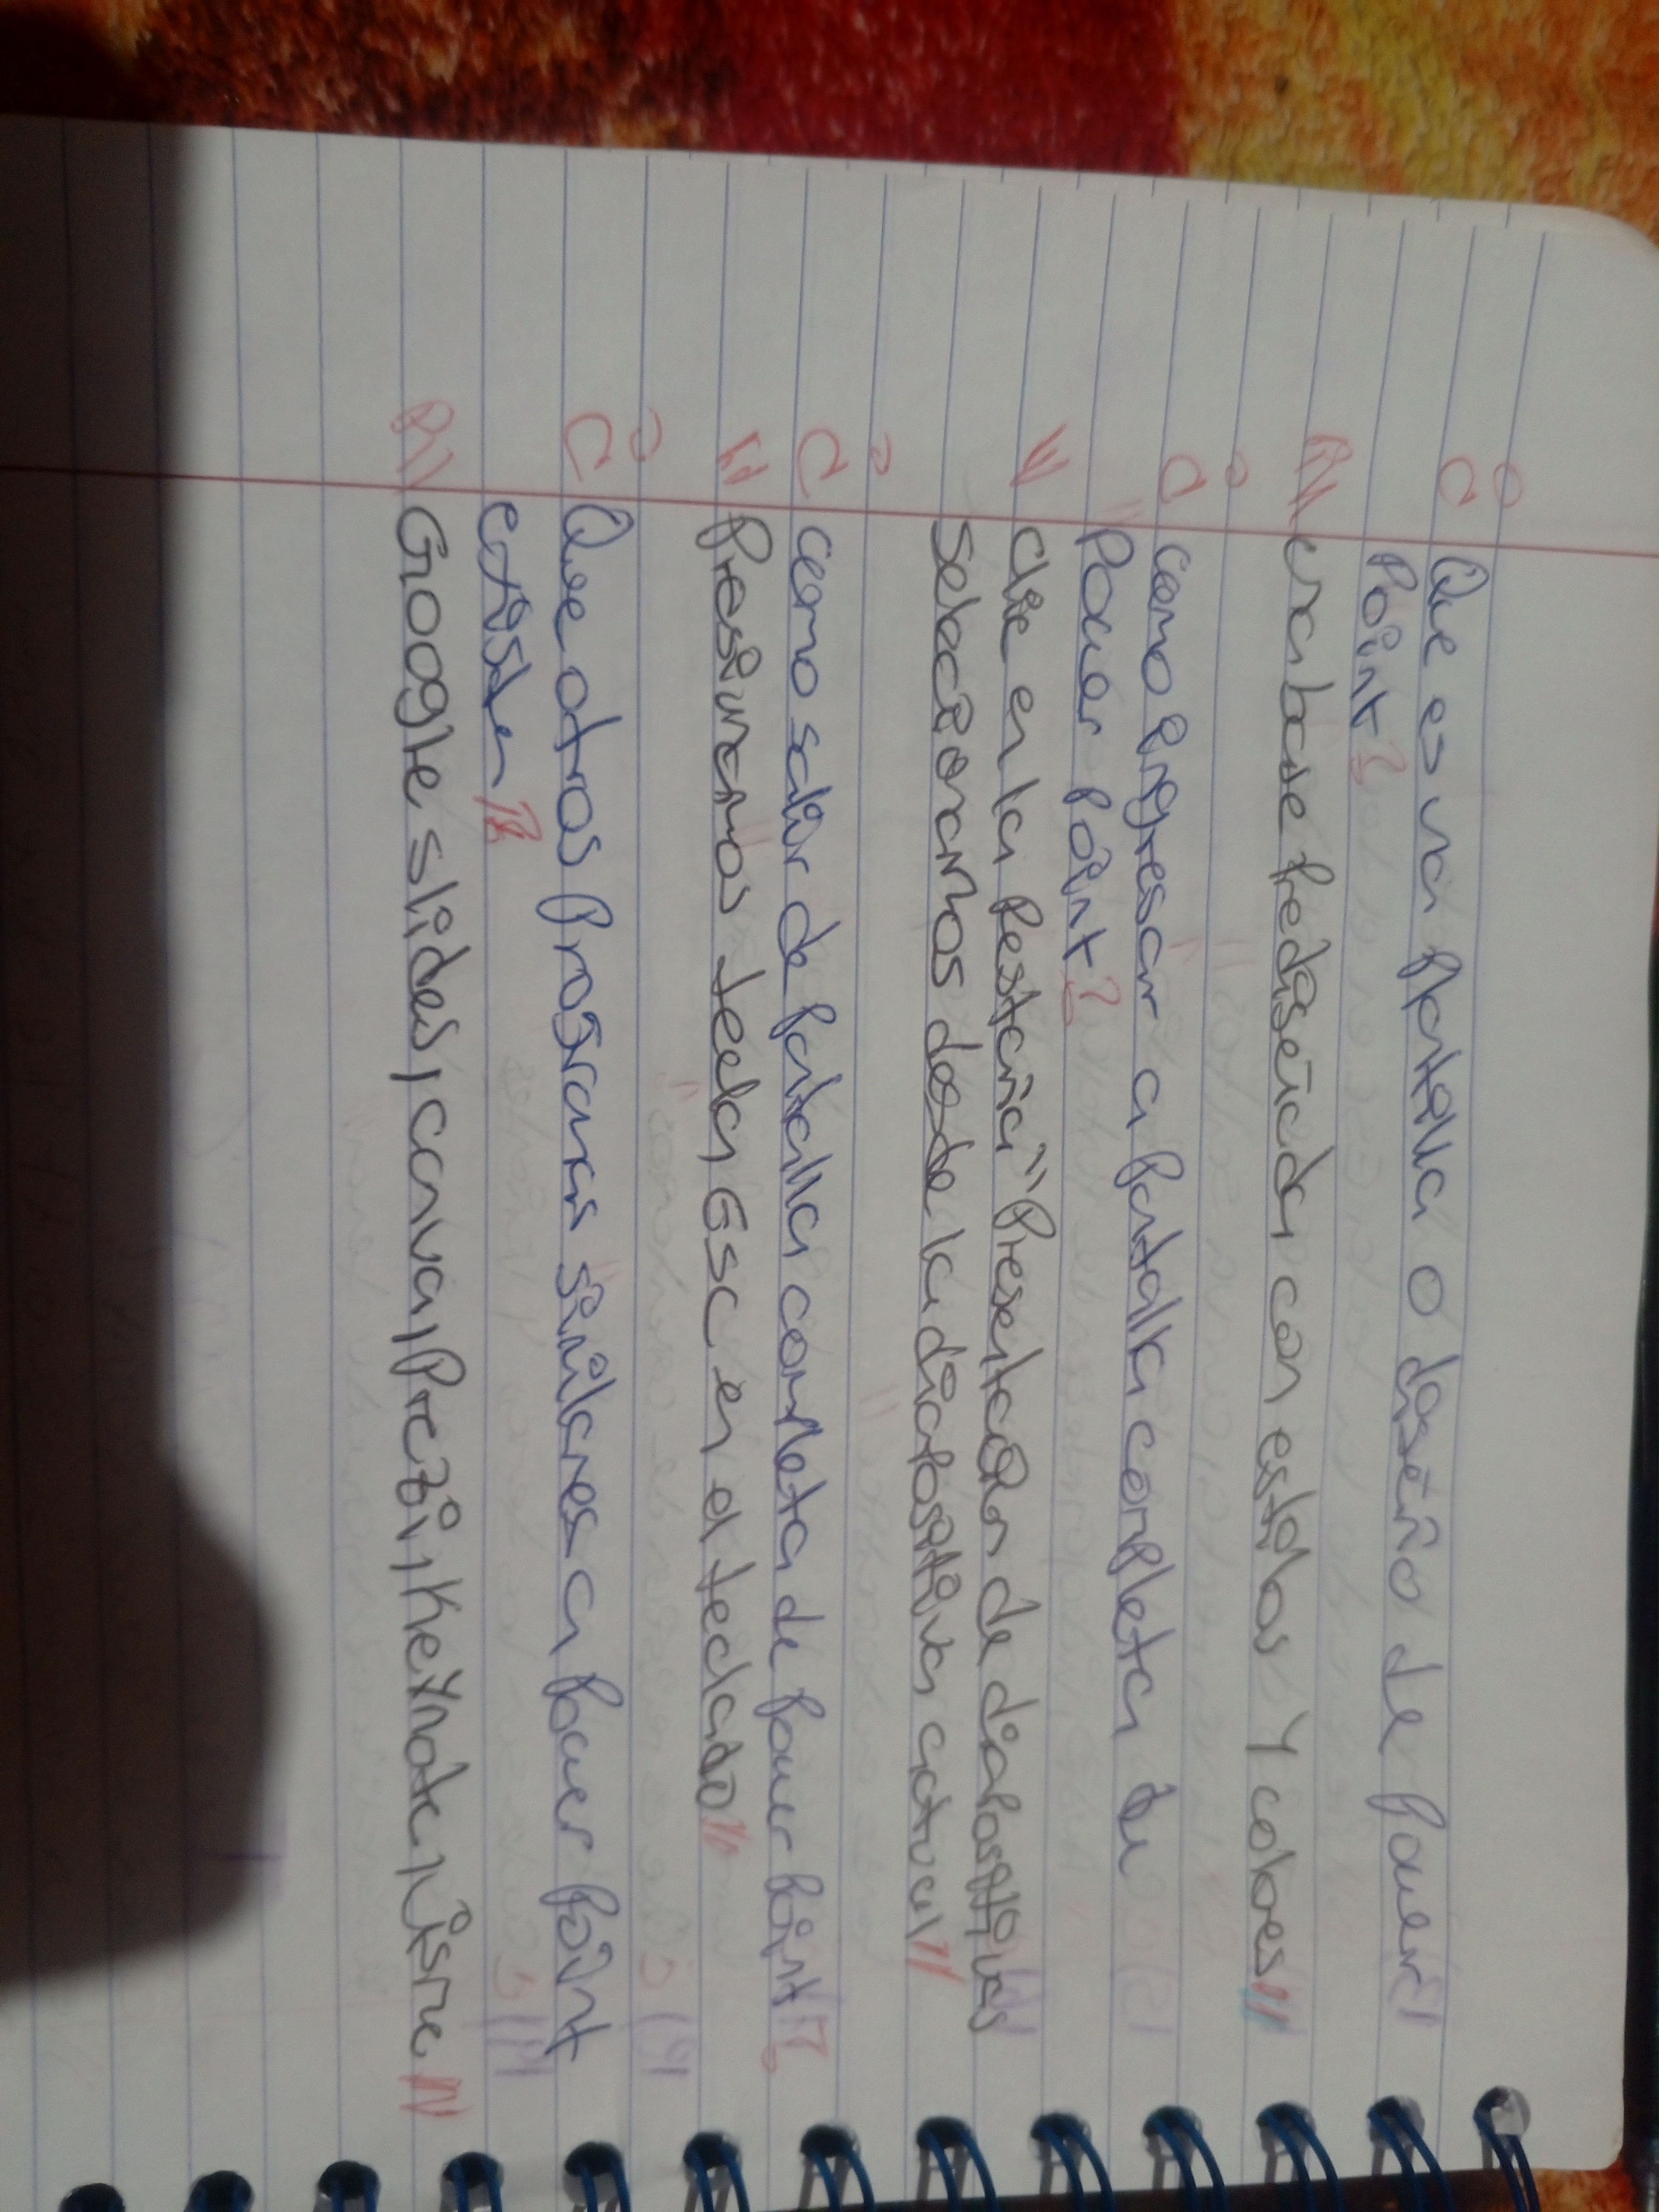 ¿Que es una plantilla o diseño de Pouer
Point?
R// una base prediseñada con estilos Y colores//
¿como ingresar a pantalla completa de
Pouer Point?
// clic en la Pestaña "Presentacion de diapositivas
seleccionamos desde la diapositiva actual//
¿como salir de pantalla completa de Pouer Point?
// Presionamos tecla Esc en el teclado//
¿Que otros Programas similares a Pouer Point
existen?
R// Google slides, canva, Prezi, Keynote, visme//